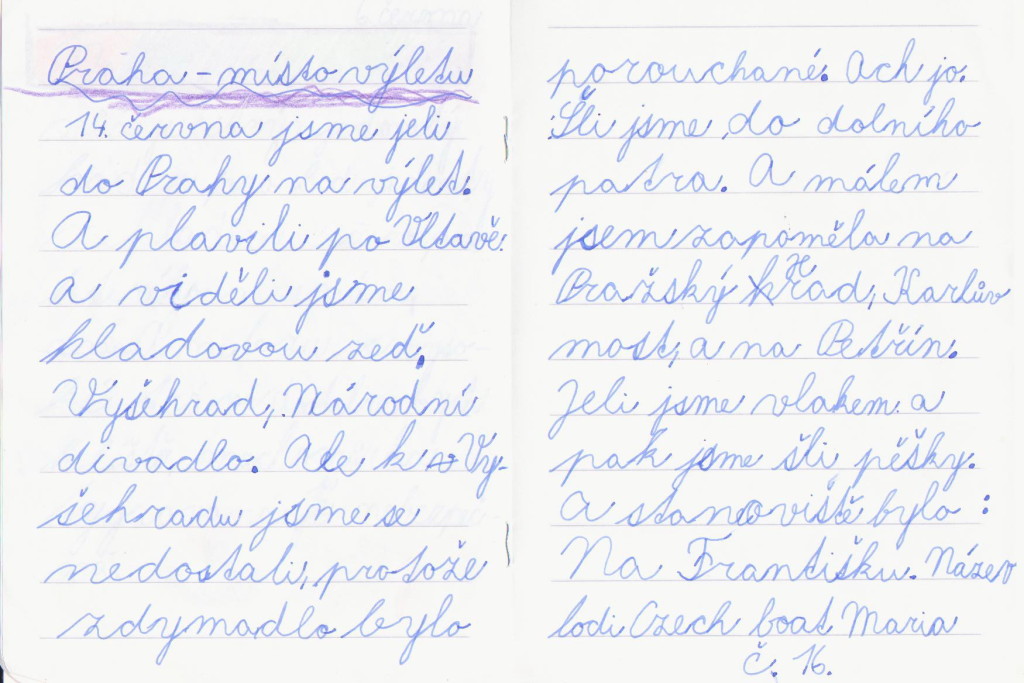 Praha - místo výletu
14. června jsme jeli
do Prahy na výlet.
A plavili po Vltavě.
a viděli jsme
hladovou zeď,
Vyšehrad, Národní
divadlo. Ale k Vy-
šehradu jsme se
nedostali, protože
zdymadlo bylo
porouchané. Ach jo.
Šli jsme do dolního
patra. A málem
jsem zapoměla na
Pražský Hrad, Karlův
most, a na Petřín.
Jeli jsme vlakem a
pak jsme šli pěšky.
A stanoviště bylo:
Na Františku. Název
lodi Czech boat Maria
č. 16.